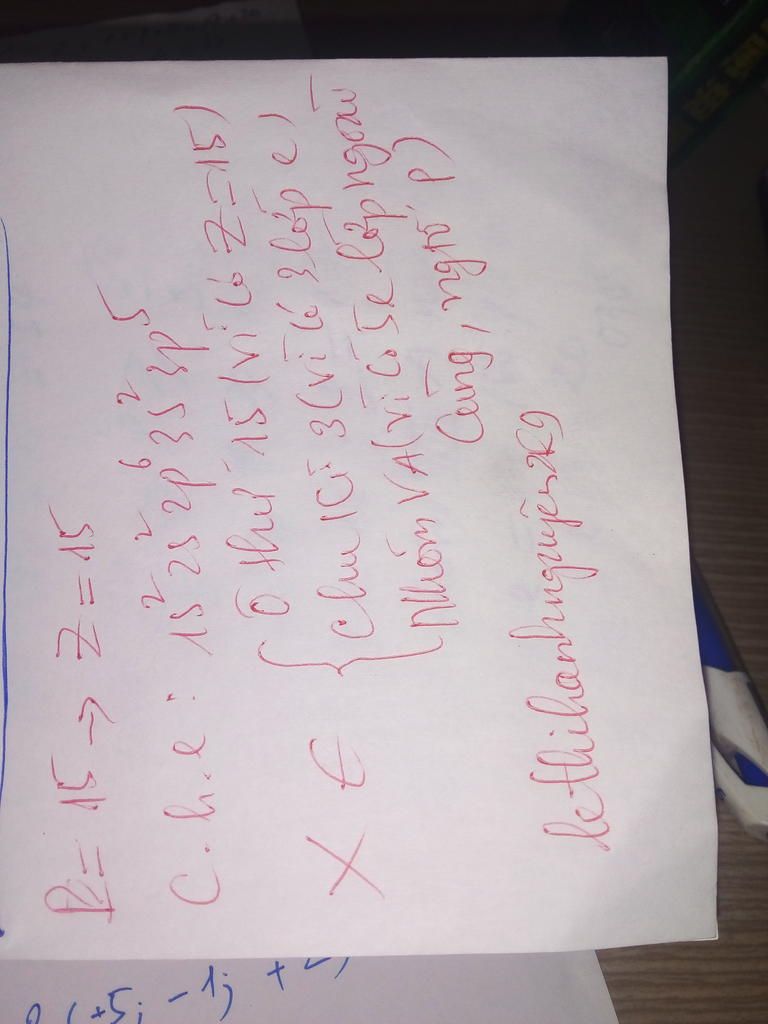 P = 15 → Z = 15
C.h.e : 1s² 2s² 2p⁶ 3s² 3p⁵
X ∈ { Ô thứ 15 (vì có Z = 15)
Chu Kì 3 (vì có 3 lớp e)
Nhóm VA (vì có 5e lớp ngoài
Cùng, ngtố p)
lethihanhnguyenk9
(+5; -1; +